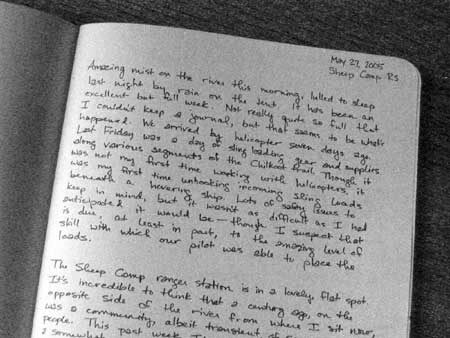 May 27, 2005
Sheep Camp RS
Amazing mist on the river this morning, lulled to sleep
last night by rain on the tent. It has been an
excellent but full week. Not really quite so full that
I couldn't keep a journal, but that seems to be what's
happened. We arrived by helicopter seven days ago.
Last Friday was a day of sling loading gear and supplies
along various segments of the Chilkoot Trail. Though it
was not my first time working with helicopters, it
was my first time unhooking incoming sling loads
beneath a hovering ship. Lots of safety issues to
keep in mind, but it wasn't as difficult as I had
anticipated it would be — though I suspect that
is due, at least in part, to the amazing level of
skill with which our pilot was able to place the
loads.
The Sheep Camp ranger station is in a lovely flat spot.
It's incredible to think that a century ago, on the
opposite side of the river from where I sit now,
was a community, albeit transient of
people. This past week I
a somewhat